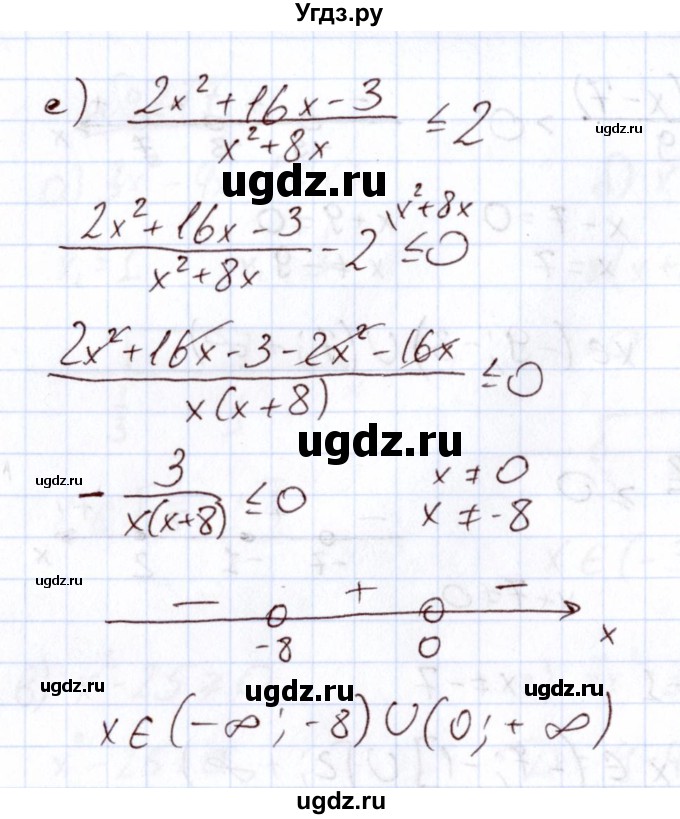 Угдз.ру
е) (2x² + 16x - 3)/(x² + 8x) ≤ 2
ugdz.ru
ugdz.ru
(2x² + 16x - 3)/(x² + 8x) - 2 \x² + 8x ≤ 0
ugdz.ru
(2x² + 16x - 3 - 2x² - 16x)/(x(x + 8)) ≤ 0
ugdz.ru
ugdz.ru
ugdz.ru
- 3/(x(x+8)) ≤ 0 x ≠ 0
x ≠ -8
ugdz.ru
ugdz.ru
- + -
-8 0 x
ugdz.ru ugdz.ru ugdz.ru
x ∈ (-∞; -8) ∪ (0; +∞)
ugdz.ru